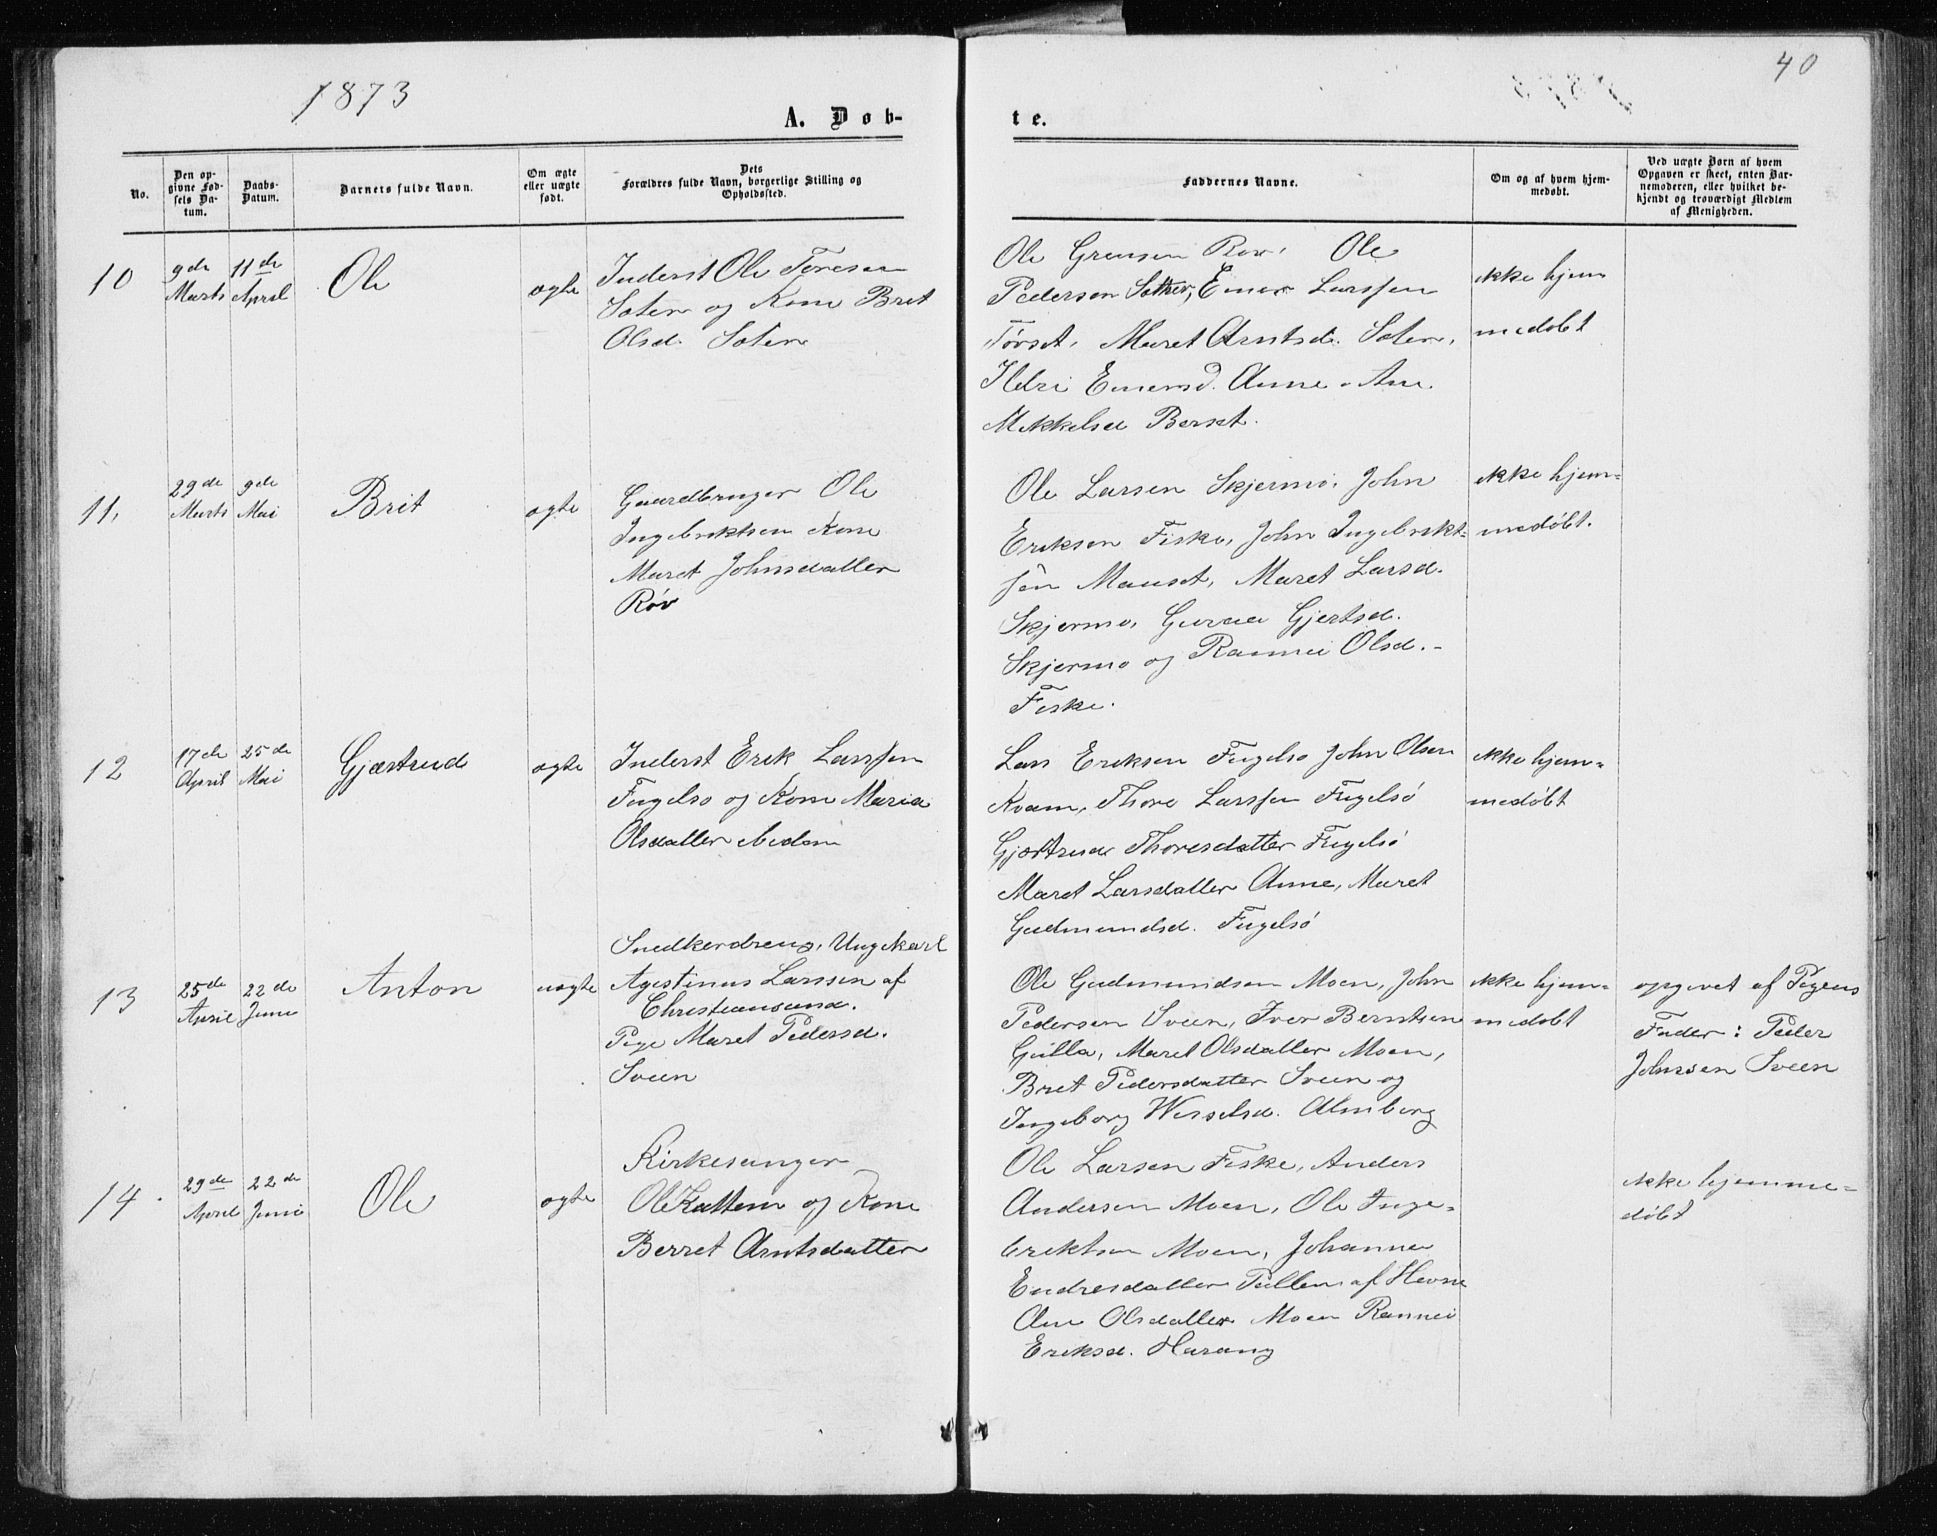 1873
40
A. Døb-
te.
No.
Den opgivne Fødsels Datum.
Daabs-Datum.
Barnets fulde Navn.
Om ægte eller uægte født.
Dets Forældres fulde Navn, borgerlige Stilling og Opholdssted.
Faddernes Navne.
Om og af hvem hjemmedøbt.
Ved uægte Børn af hvem Opgaven er skeet, enten Barnemoderen, eller hvilket bekjendt og troværdigt Medlem af Menigheden.
10
9de Marts
11de April
Ole
ægte
Inderst Ole Toresen
Sæter og Kone Bret
Olsd. Sæter
Ole Grensen Røv, Ole
Pedersen Sæther, Einar Larssen
Tørset, Maret Arntsd. Sæter,
Ildri Einersd. Aune - Ane
Mikkelsd Børset.
ikke hjem
medøbt
11,
29de Marts
9de Mai
Brit
ægte
Gaardbruger Ole
Ingebriktsen Kone
Maret Johnsdatter
Røv
Ole Larsen Skjermo, John
Eriksen Fiske, John Ingebrikt=
sen Mauset, Maret Larsd.
Skjermo, Guraa Gjertsd.
Skjermo og Rannei Olsd.-
Fiske.
ikke hjem=
medøbt.
12
17de April
25de Mai
Gjærtrud
ægte
Inderst Erik Larssen
Fugelsø og Kone Maria
Olsdatter ibidem
Lars Eriksen Fugelsø John Olsen
Kvam, Thore Larssen Fugelsø
Gjærtrud Thoresdatter Fugelsø
Maret Larsdatter Aune, Maret
Gudmundsd. Fugelsø
ikke hjem=
medøbt
13
25de April
22de Juni
Anton
uægte
Snedkerdreng, Ungekarl
Agestinus Larssen af
Christiansund.
Pige Maret Pedersd.
Sveen
Ole Gudmundsen Moen, John
Pedersen Sveen, Iver Berntsen
Gulla, Maret Olsdatter Moen,
Bret Pedersdatter Sveen og
Ingeborg Wesselsd. Almberg
ikke hjem=
medøbt
opgivet af Pigens
Fader: Peder
Johnsen Sveen
14.
29de April
22de Juni
Ole
ægte
Kirkesanger
Ole Kattem og Kone
Berret Arntsdatter
Ole Larsen Fiske, Anders
Andersen Moen, Ole Inge=
briktsen Moen, Johanne
Endresdatter af Hevne
Ane Olsdatter Moen Rannei
Eriksd. Harang
ikke hjemme=
døbt